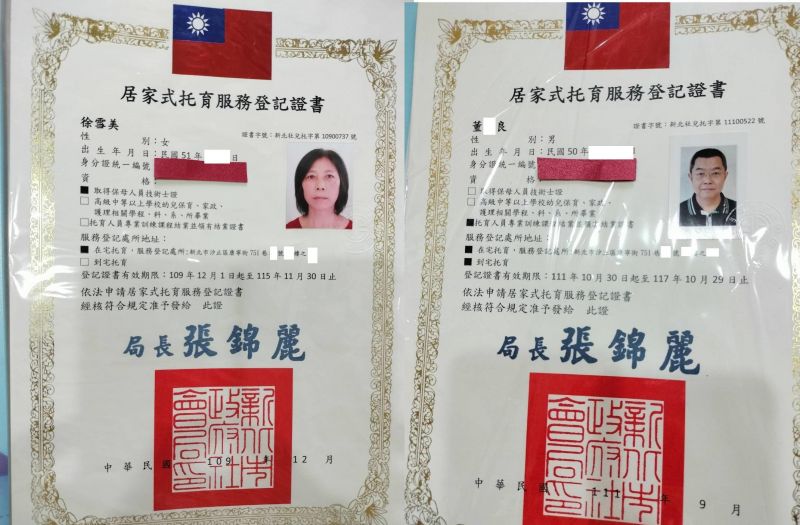 居家式托育服務登記證書
徐雪美
證書字號：新北社兒托字第10900737號
性別：女
出生年月日：民國51年 日
身分證統一編號
資格：
■取得保母人員技術士證
□高級中等以上學校幼兒保育、家政、
護理相關學程、科、系、所畢業
□托育人員專業訓練課程結業並領有結業證書
服務登記處所地址：
■在宅托育，服務登記處所：新北市汐止區康寧街751巷 號 樓之
□到宅托育
登記證書有效期限：109年12月1日起至115年11月30日止
依法申請居家式托育服務登記證書
經核符合規定准予發給 此證
局長 張錦麗
新北市政府社會局印
中華民國 109 12月
居家式托育服務登記證書
董 良
證書字號：新北社兒托字第11100522號
性別：男
出生年月日：民國50年 日
身分證統一編號
資格：
□取得保母人員技術士證
□高級中等以上學校幼兒保育、家政、
護理相關學程、科、系、所畢業
■托育人員專業訓練課程結業並領有結業證書
服務登記處所地址：
■在宅托育，服務登記處所：新北市汐止區康寧街751巷 號 樓之
■到宅托育
登記證書有效期限：111年10月30日起至117年10月29日止
依法申請居家式托育服務登記證書
經核符合規定准予發給 此證
局長 張錦麗
新北市政府社會局印
中華民國 111 年 9月